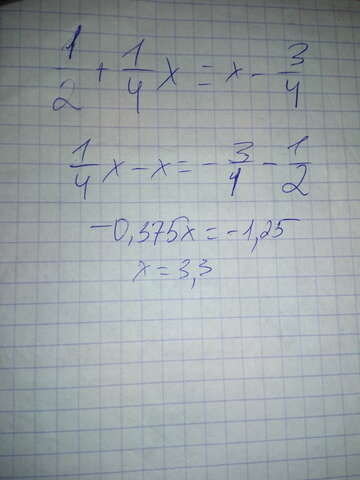 1/2 + 1/4 x = x - 3/4
1/4 x - x = - 3/4 - 1/2
-0,375x = -1,25
x = 3,3